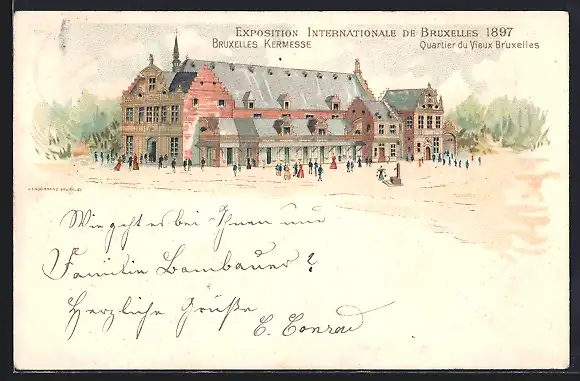 EXPOSITION INTERNATIONALE DE BRUXELLES 1897
BRUXELLES KERMESSE
Quartier du Vieux Bruxelles
Wie geht es bei Ihnen und
Familie Bambauer?
Herzliche Grüße
C. Conrad